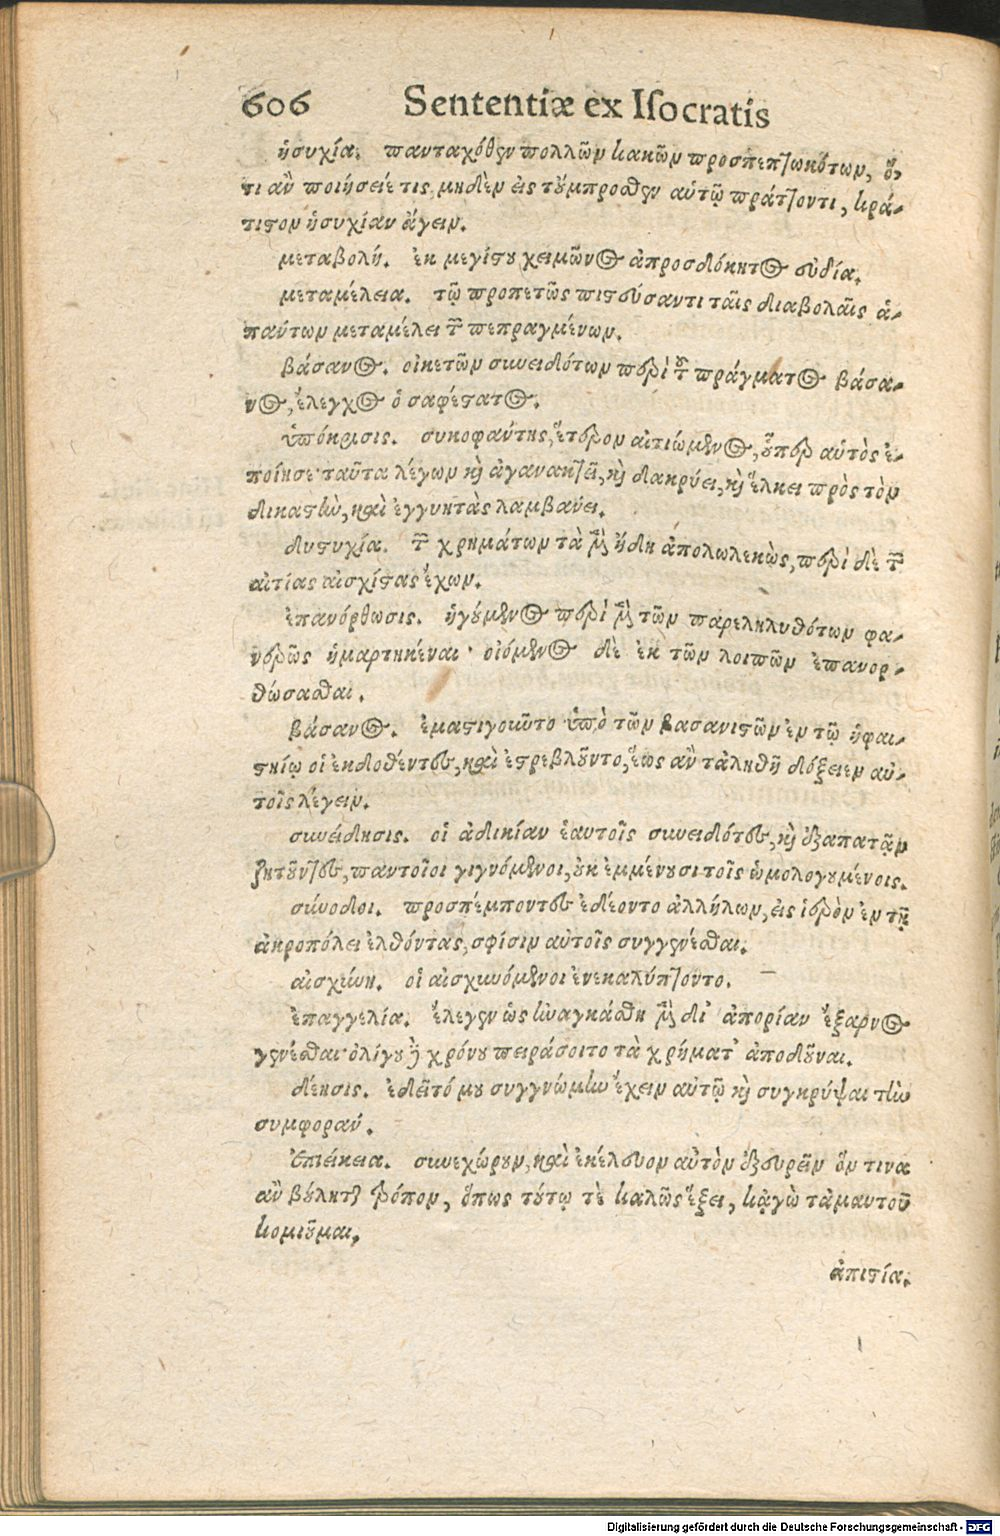 606 Sententiæ ex Iſocratis
ἡσυχία. πανταχόθεν πολλῶν κακῶν προσπεπτωκότων, ὅ,
τι ἂν ποιήσειέ τις, μηδὲν εἰς τοὔμπροσθεν αὐτῷ πράττοντι, κρά-
τιστον ἡσυχίαν ἄγειν.
μεταβολή. ἐκ μεγίστου χειμῶνος ἀπροσδόκητος εὐδία.
μεταμέλεια. τῷ προπετῶς πιστεύσαντι ταῖς διαβολαῖς ἁ-
πάντων μεταμέλει τῶν πεπραγμένων.
βάσανος. οἰκετῶν συνειδότων περὶ τοῦ πράγματος βάσα-
νος, ἔλεγχος ὁ σαφέστατος.
ὑπόκρισις. συκοφάντης, ἕτερον αἰτιώμενος, οὗπερ αὐτὸς ἐ-
ποίησε· ταῦτα λέγων καὶ ἀγανακτεῖ, καὶ δακρύει, καὶ ἕλκει πρὸς τὸν
δικαστὴν, καὶ ἐγγυητὰς λαμβάνει.
δυστυχία. τῶν χρημάτων τὰ μὲν ἤδη ἀπολωλεκὼς, περὶ δὲ τῶν
αἰτίας αἰσχίστας ἔχων.
ἐπανόρθωσις. ἡγούμενος περὶ μὲν τῶν παρεληλυθότων φα-
νερῶς ἡμαρτηκέναι· οἰόμενος δὲ ἐκ τῶν λοιπῶν ἐπανορ-
θώσασθαι.
βάσανος. ἐμαστιγοῦντο ὑπὸ τῶν βασανιστῶν ἐν τῷ ἡφαι-
στείῳ οἱ ἐκδοθέντες, καὶ ἐστρεβλοῦντο, ἕως ἂν τἀληθῆ δόξειεν αὐ-
τοῖς λέγειν.
συνείδησις. οἱ ἀδικίαν ἑαυτοῖς συνειδότες, καὶ ἐξαπατᾷν
ζητοῦντες, παντοῖοι γιγνόμενοι, οὐκ ἐμμένουσι τοῖς ὡμολογουμένοις.
σύνοδοι. προσπέμποντες ἐδέοντο ἀλλήλων, εἰς ἱερὸν ἐν τῇ
ἀκροπόλει ἐλθόντας, σφίσιν αὐτοῖς συγγενέσθαι.
αἰσχύνη. οἱ αἰσχυνόμενοι ἐνεκαλύπτοντο.
ἐπαγγελία. ἔλεγεν ὡς ἠναγκάσθη μὲν δι᾽ ἀπορίαν ἔξαρνος
γενέσθαι· ὀλίγου δὲ χρόνου πειράσοιτο τὰ χρήματ᾽ ἀποδοῦναι.
δέησις. ἐδεῖτό μου συγγνώμην ἔχειν αὐτῷ καὶ συγκρύψαι τὴν
συμφοράν.
Ἐπιείκεια. συνεχώρουν, καὶ ἐκέλευον αὐτὸν ἐξευρεῖν ὅν τινα
ἂν βούληται τρόπον, ὅπως τούτῳ τὲ καλῶς ἕξει, κᾀγὼ τἀμαυτοῦ
κομιοῦμαι.
ἀπιστία.
Digitalisierung gefördert durch die Deutsche Forschungsgemeinschaft - DFG